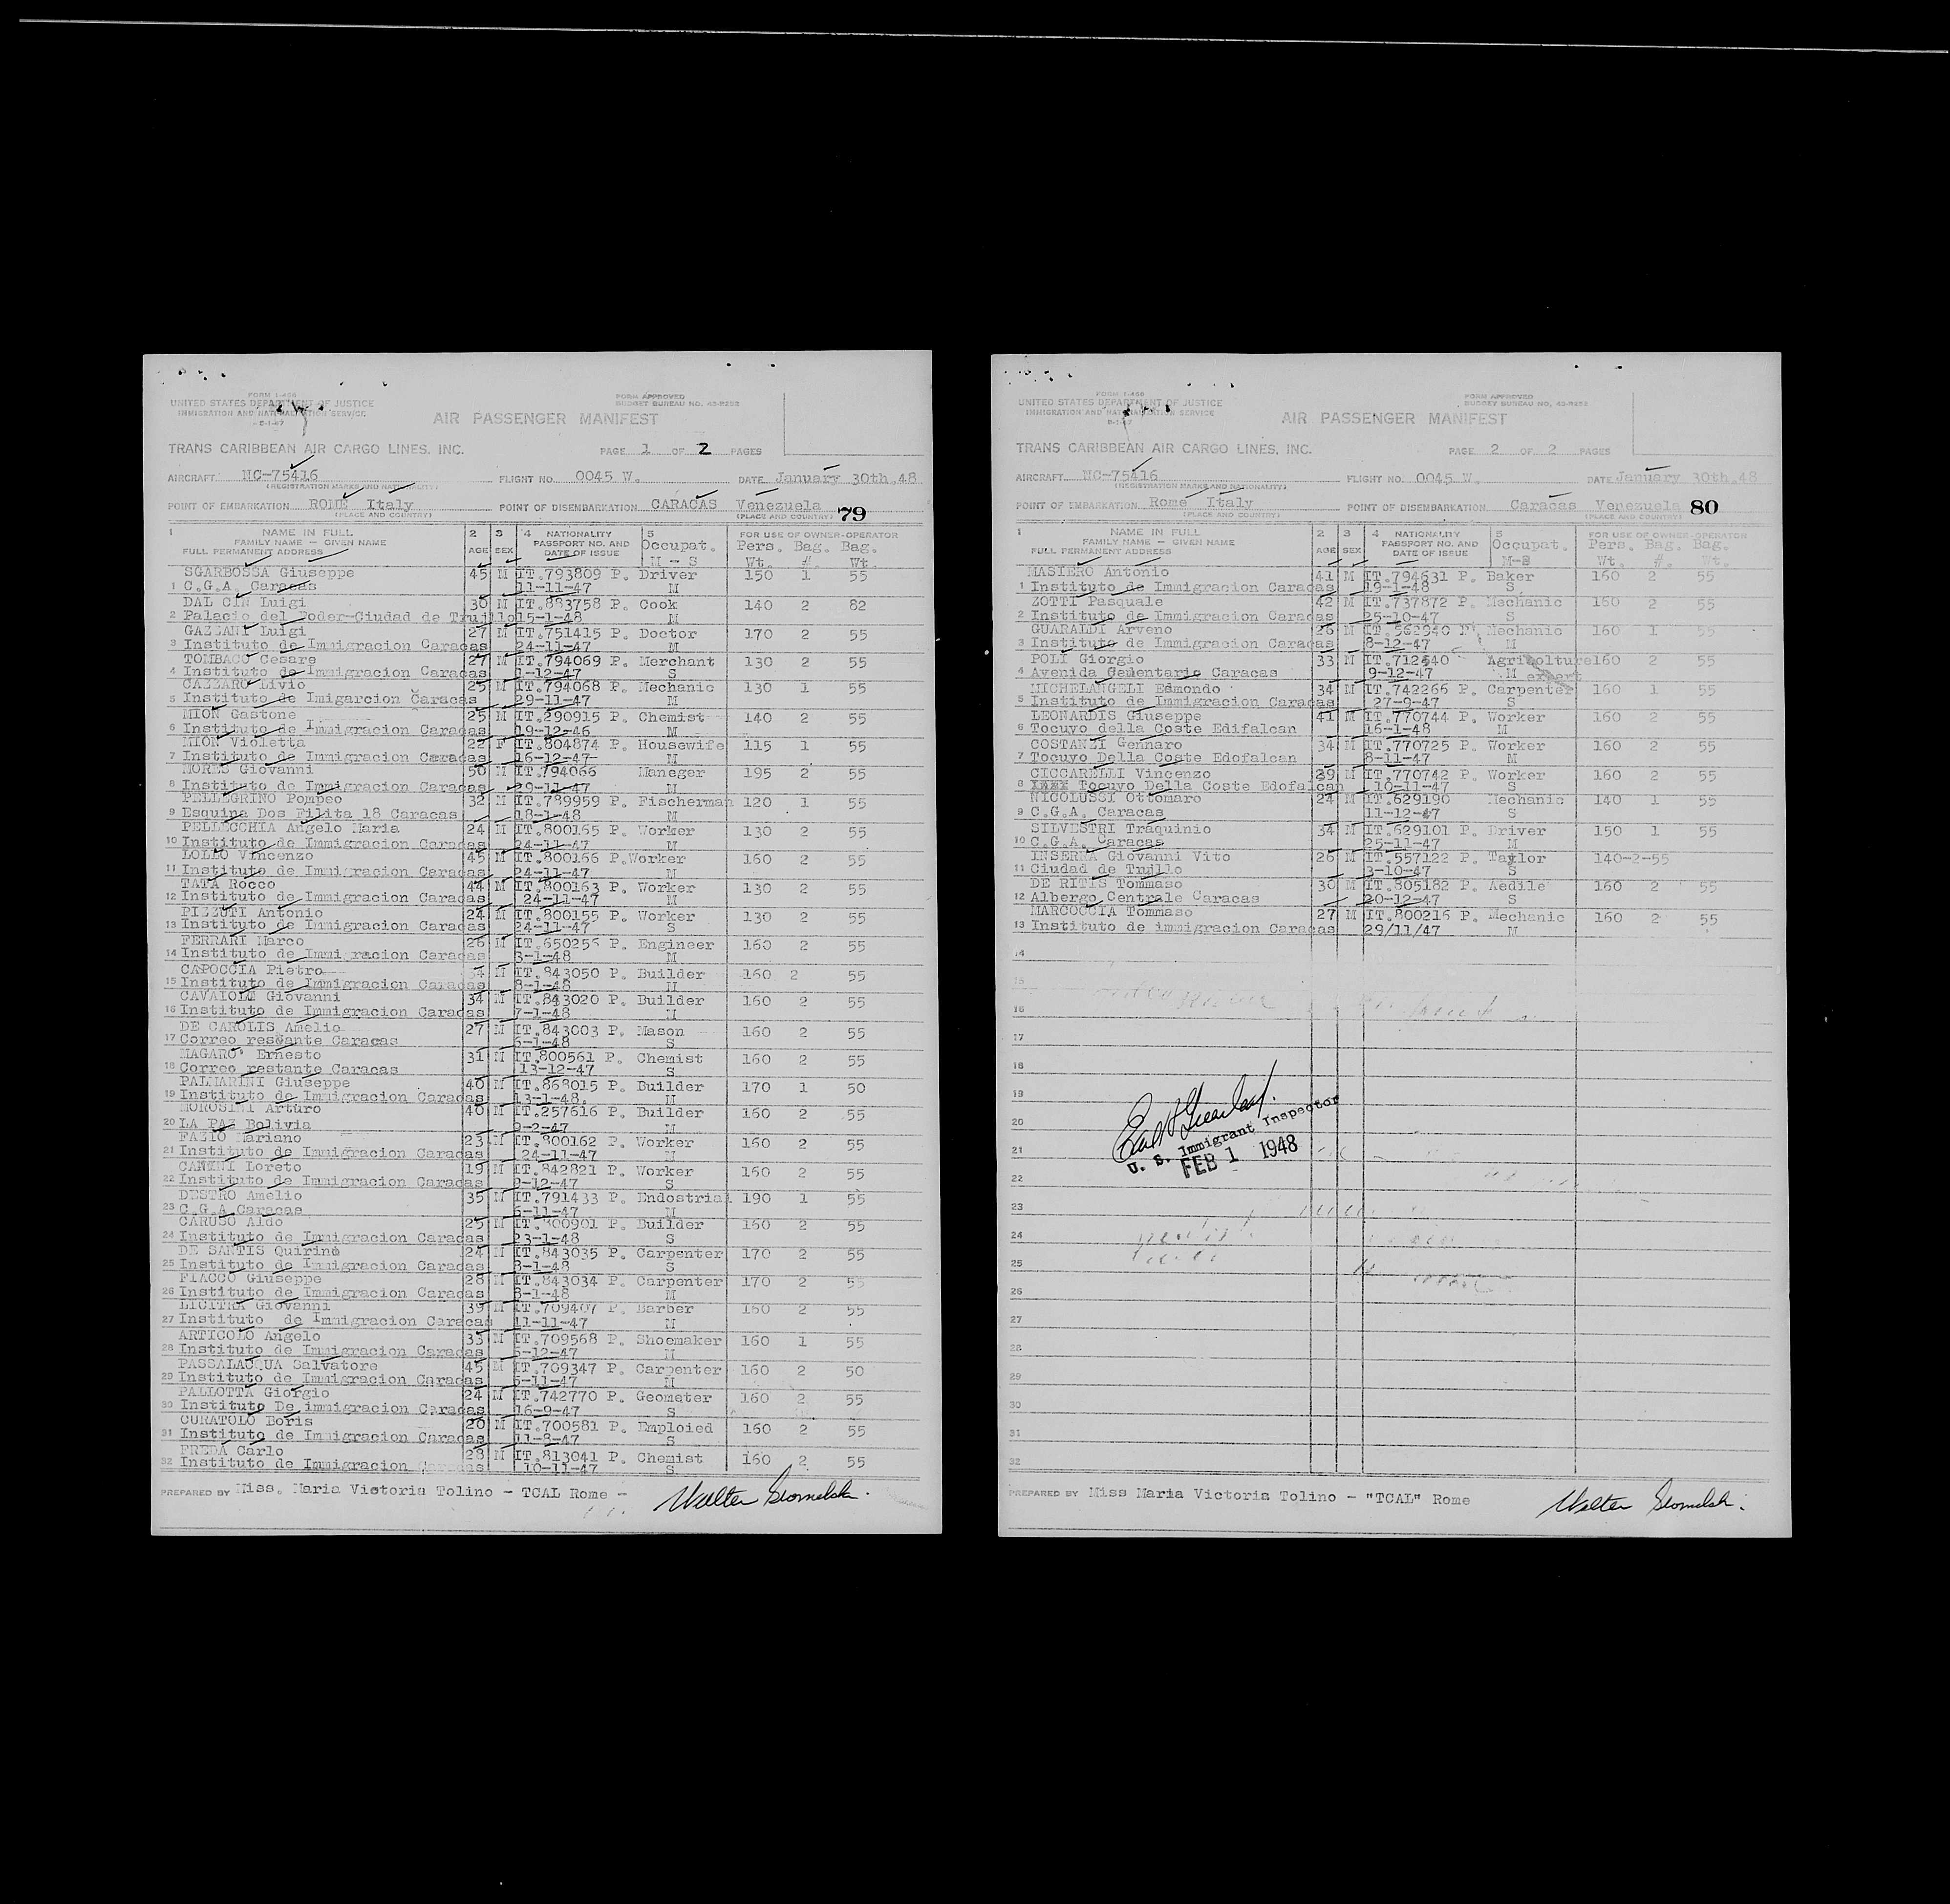 FORM I-466
UNITED STATES DEPARTMENT OF JUSTICE
IMMIGRATION AND NATURALIZATION SERVICE
FORM APPROVED
BUDGET BUREAU NO. 43-R283
AIR PASSENGER MANIFEST
TRANS CARIBBEAN AIR CARGO LINES, INC.
PAGE 1 OF 2 PAGES
AIRCRAFT NC-75416 FLIGHT NO. 0045 W. DATE January 30th.48
(REGISTRATION MARKS AND NATIONALITY)
POINT OF EMBARKATION ROME Italy POINT OF DISEMBARKATION CARACAS Venezuela 79
(PLACE AND COUNTRY) (PLACE AND COUNTRY)
1 NAME IN FULL 2 3 4 NATIONALITY 5 FOR USE OF OWNER-OPERATOR
FAMILY NAME — GIVEN NAME PASSPORT NO. AND Occupat. Pers. Bag. Bag.
FULL PERMANENT ADDRESS AGE SEX DATE OF ISSUE M - S Wt. #. Wt.
SGARBOSSA Giuseppe 45 M IT.793809 P. Driver 150 1 55
1 C.G.A. Caracas 11-11-47 M
DAL CIN Luigi 30 M IT.883758 P. Cook 140 2 82
2 Palacio del Poder-Ciudad de Trujillo 15-1-48 M
GAZZANI Luigi 27 M IT.751415 P. Doctor 170 2 55
3 Instituto de Immigracion Caracas 24-11-47 M
TOMBACO Cesare 27 M IT.794069 P. Merchant 130 2 55
4 Instituto de Immigracion Caracas 1-12-47 S
CAZZARO Livio 25 M IT.794068 P. Mechanic 130 1 55
5 Instituto de Imigarcion Caracas 29-11-47 M
MION Gastone 25 M IT.290915 P. Chemist 140 2 55
6 Instituto de Immigracion Caracas 19-12-46 M
MION Violetta 22 F IT.804874 P. Housewife 115 1 55
7 Instituto de Immigracion Caracas 16-12-47 M
MORES Giovanni 50 M IT.794066 Maneger 195 2 55
8 Instituto de Immigracion Caracas 29-11-47 M
PELLEGRINO Pompeo 32 M IT.789959 P. Fischerman 120 1 55
9 Esquina Dos Filita 18 Caracas 18-1-48 M
PELLECCHIA Angelo Maria 24 M IT.800165 P. Worker 130 2 55
10 Instituto de Immigracion Caracas 24-11-47 M
LOLLO Vincenzo 45 M IT.800166 P.Worker 160 2 55
11 Instituto de Immigracion Caracas 24-11-47 M
TATA Rocco 44 M IT.800163 P. Worker 130 2 55
12 Instituto de Immigracion Caracas 24-11-47 M
PIZZUTI Antonio 24 M IT.800155 P. Worker 130 2 55
13 Instituto de Immigracion Caracas 24-11-47 S
FERRARI Marco 26 M IT.650256 P. Engineer 160 2 55
14 Instituto de Immigracion Caracas 3-1-48 M
CAPOCCIA Pietro 34 M IT.843050 P. Builder 160 2 55
15 Instituto de Immigracion Caracas 8-1-48 M
CAVAIOLE Giovanni 34 M IT.843020 P. Builder 160 2 55
16 Instituto de Immigracion Caracas 7-1-48 M
DE CAROLIS Amelio 27 M IT.843003 P. Mason 160 2 55
17 Correo restante Caracas 6-1-48 S
MAGARO' Ernesto 31 M IT.800561 P. Chemist 160 2 55
18 Correo restante Caracas 13-12-47 S
PALMARINI Giuseppe 40 M IT.868015 P. Builder 170 1 50
19 Instituto de Immigracion Caracas 13-1-48. M
MOROSINI Arturo 40 M IT.257616 P. Builder 160 2 55
20 LA PAZ Bolivia 9-2-47 M
FAZIO Mariano 23 M IT.800162 P. Worker 160 2 55
21 Instituto de Immigracion Caracas 24-11-47 M
CANINI Loreto 19 M IT.842821 P. Worker 160 2 55
22 Instituto de Immigracion Caracas 9-12-47 S
DESTRO Amelio 35 M IT.791433 P. Endostrial 190 1 55
23 C.G.A Caracas 6-11-47 M
CARUSO Aldo 25 M IT.800901 P. Builder 160 2 55
24 Instituto de Immigracion Caracas 23-1-48 S
DE SANTIS Quirino 24 M IT.843035 P. Carpenter 170 2 55
25 Instituto de Immigracion Caracas 8-1-48 S
FIACCO Giuseppe 28 M IT.843034 P. Carpenter 170 2 55
26 Instituto de Immigracion Caracas 8-1-48 M
LICITRA Giovanni 39 M IT.709407 P. Barber 160 2 55
27 Instituto de Immigracion Caracas 11-11-47 M
ARTICOLO Angelo 33 M IT.709568 P. Shoemaker 160 1 55
28 Instituto de Immigracion Caracas 5-12-47 M
PASSALACQUA Salvatore 45 M IT.709347 P. Carpenter 160 2 50
29 Instituto de Immigracion Caracas 5-11-47 M
PALLOTTA Giorgio 24 M IT.742770 P. Geometer 160 2 55
30 Instituto De immigracion Caracas 16-9-47 S
CURATOLO Boris 20 M IT.700581 P. Emploied 160 2 55
31 Instituto de Immigracion Caracas 11-8-47 S
FREDA Carlo 28 M IT.813041 P. Chemist 160 2 55
32 Instituto de Immigracion Caracas 10-11-47 S
PREPARED BY Miss. Maria Victoria Tolino - TCAL Rome -
FORM I-466
UNITED STATES DEPARTMENT OF JUSTICE
IMMIGRATION AND NATURALIZATION SERVICE
FORM APPROVED
BUDGET BUREAU NO. 43-R283
AIR PASSENGER MANIFEST
TRANS CARIBBEAN AIR CARGO LINES, INC.
PAGE 2 OF 2 PAGES
AIRCRAFT NC-75416 FLIGHT NO. 0045 W. DATE January 30th.48
(REGISTRATION MARKS AND NATIONALITY)
POINT OF EMBARKATION Rome Italy POINT OF DISEMBARKATION Caracas Venezuela 80
(PLACE AND COUNTRY) (PLACE AND COUNTRY)
1 NAME IN FULL 2 3 4 NATIONALITY 5 FOR USE OF OWNER-OPERATOR
FAMILY NAME — GIVEN NAME PASSPORT NO. AND Occupat. Pers. Bag. Bag.
FULL PERMANENT ADDRESS AGE SEX DATE OF ISSUE M-S Wt. #. Wt.
MASIERO Antonio 41 M IT.794631 P. Baker 160 2 55
1 Instituto de Immigracion Caracas 19-1-48 S
ZOTTI Pasquale 42 M IT.737872 P. Mechanic 160 2 55
2 Instituto de Immigracion Caracas 25-10-47 S
GUARALDI Arveno 26 M IT.562940 P. Mechanic 160 1 55
3 Instituto de Immigracion Caracas 8-12-47 M
POLI Giorgio 33 M IT.712640 Agricolture 160 2 55
4 Avenida Gementario Caracas 9-12-47 M expert
MICHELANGELI Edmondo 34 M IT.742266 P. Carpenter 160 1 55
5 Instituto de Immigracion Caracas 27-9-47 S
LEONARDIS Giuseppe 41 M IT.770744 P. Worker 160 2 55
6 Tocuyo della Coste Edifalcan 16-1-48 M
COSTANZI Gennaro 34 M IT.770725 P. Worker 160 2 55
7 Tocuyo Della Coste Edofalcan 8-11-47 M
CICCARELLI Vincenzo 39 M IT.770742 P. Worker 160 2 55
8 Tocuyo Della Coste Edofalcan 10-11-47 S
NICOLUSSI Ottomaro 24 M IT.629190 Mechanic 140 1 55
9 C.G.A. Caracas 11-12-47 S
SILVESTRI Traquinio 34 M IT.629101 P. Driver 150 1 55
10 C.G.A. Caracas 25-11-47 M
INSERRA Giovanni Vito 26 M IT.557122 P. Taylor 140-2-55
11 Ciudad de Tujllo 3-10-47 S
DE RITIS Tommaso 30 M IT.805182 P. Aedile 160 2 55
12 Albergo Centrale Caracas 20-12-47 S
MARCOCCIA Tommaso 27 M IT.800216 P. Mechanic 160 2 55
13 Instituto de immigracion Caracas 29/11/47 M
14
15
16
17
18
19
20
U. S. Immigrant Inspector
21
FEB 1 1948
22
23
24
25
26
27
28
29
30
31
32
PREPARED BY Miss Maria Victoria Tolino - "TCAL" Rome